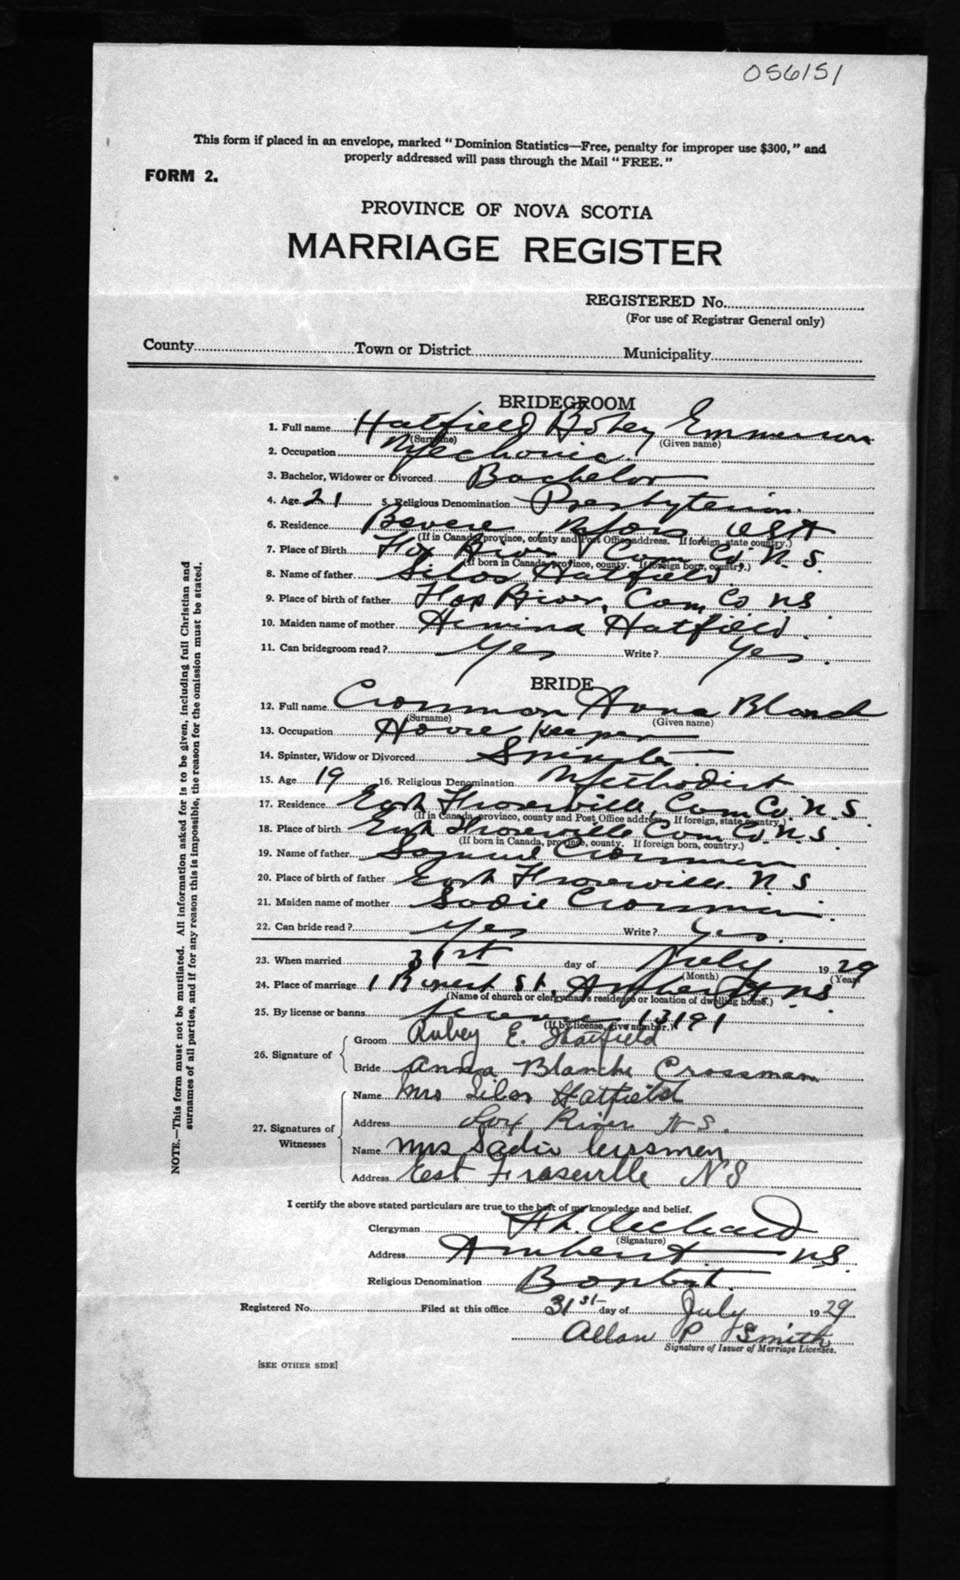 056151
This form if placed in an envelope, marked "Dominion Statistics—Free, penalty for improper use $300," and
properly addressed will pass through the Mail "FREE."
FORM 2.
PROVINCE OF NOVA SCOTIA
MARRIAGE REGISTER
REGISTERED No.
(For use of Registrar General only)
County Town or District Municipality
BRIDEGROOM
1. Full name Hatfield Emmerson
(Surname) (Given name)
2. Occupation Mechanic
3. Bachelor, Widower or Divorced Bachelor
4. Age 21 5. Religious Denomination Presbyterian
6. Residence USA
(If in Canada, province, county and Post Office address. If foreign, state country.)
7. Place of Birth Fox River Cum Co. N. S.
(If born in Canada, province, county. If foreign born, country.)
8. Name of father Silas Hatfield
9. Place of birth of father Fox River, Cum Co NS
10. Maiden name of mother Hatfield
11. Can bridegroom read? Yes Write? Yes
BRIDE
12. Full name Crossman Anna Blanch
(Surname) (Given name)
13. Occupation House Keeper
14. Spinster, Widow or Divorced Spinster
15. Age 19 16. Religious Denomination Methodist
17. Residence East Fraserville, Cum Co. N. S.
(If in Canada, province, county and Post Office address. If foreign, state country.)
18. Place of birth East Fraserville Cum Co. N. S.
(If born in Canada, province, county. If foreign born, country.)
19. Name of father Crossman
20. Place of birth of father East Fraserville N S
21. Maiden name of mother Sadie Crossman
22. Can bride read? Yes Write? Yes
23. When married 31st day of July 1929
(Month) (Year)
24. Place of marriage 1 Rupert St, Amherst NS
(Name of church or clergyman's residence or location of dwelling house.)
25. By license or banns License 13191
(If by license, give number.)
26. Signature of Groom Rubey E. Hatfield
Bride Anna Blanche Crossman
27. Signatures of Witnesses Name Mrs Silas Hatfield
Address Fox River N S.
Name Mrs Sadie Crossman
Address East Fraserville N S
I certify the above stated particulars are true to the best of my knowledge and belief.
Clergyman
(Signature)
Address Amherst NS.
Religious Denomination Baptist
Registered No. Filed at this office 31st day of July 1929
Allan P Smith
Signature of Issuer of Marriage Licenses.
[SEE OTHER SIDE]
NOTE.—This form must not be mutilated. All information asked for is to be given, including full Christian and
surnames of all parties, and if for any reason this is impossible, the reason for the omission must be stated.